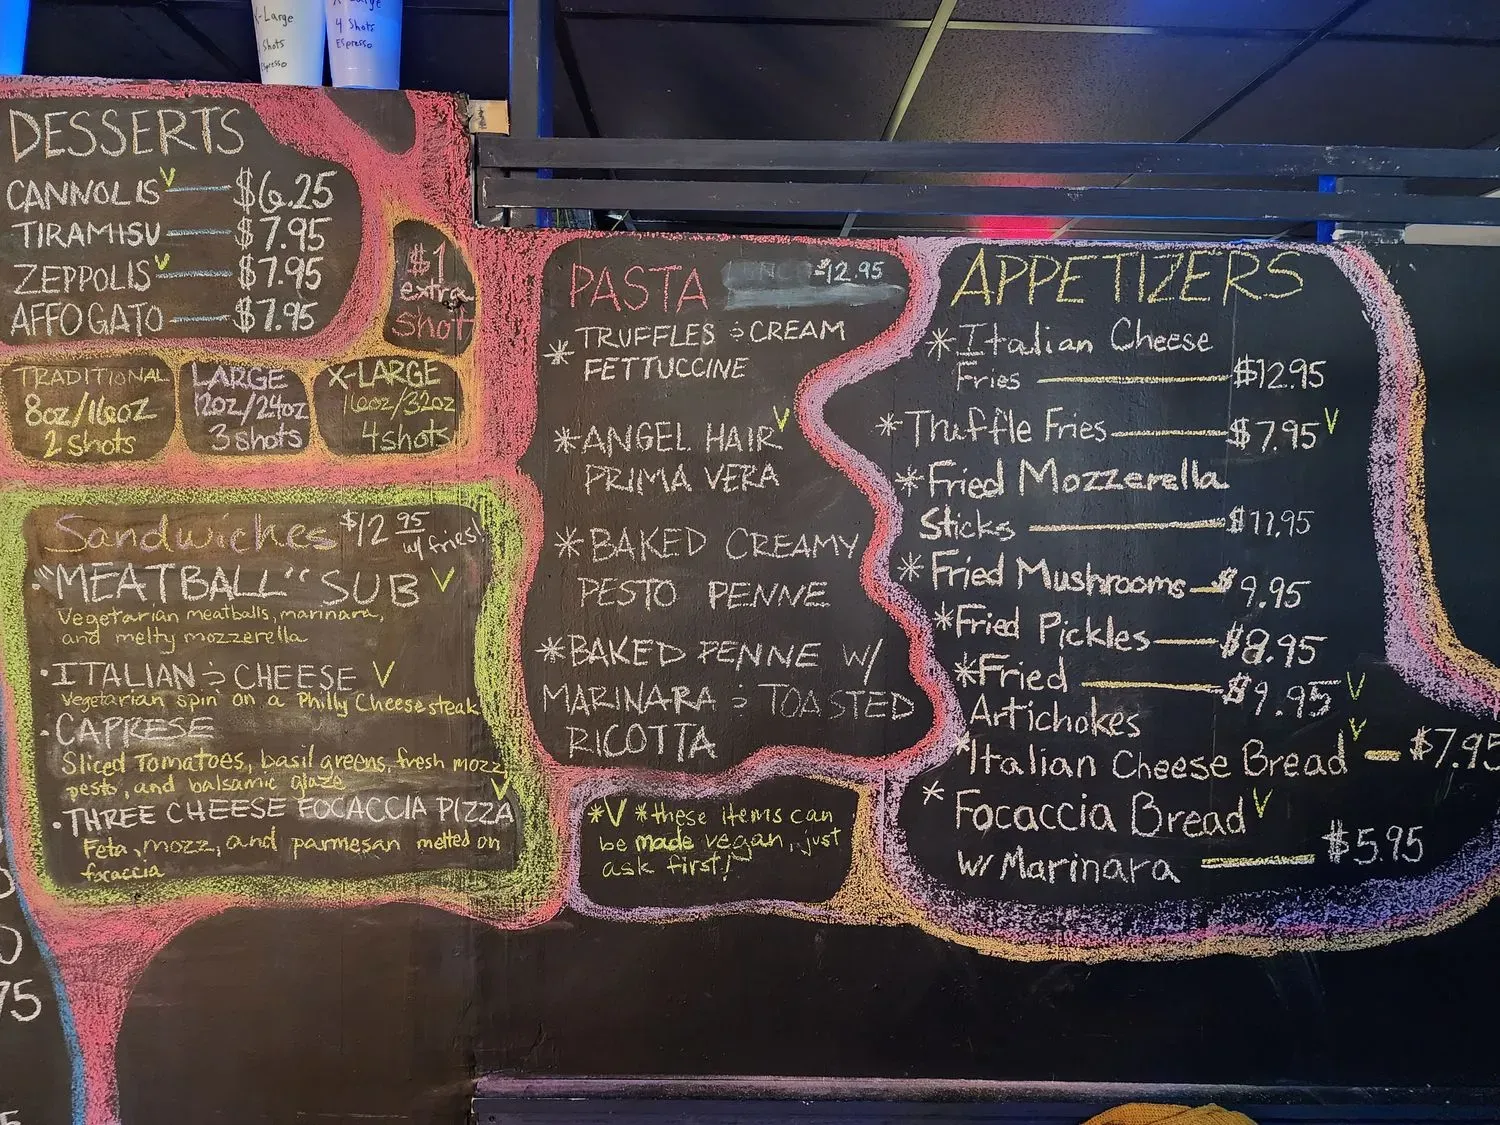 X-Large
Shots
Espresso
X-Large
4 Shots
Espresso
DESSERTS
CANNOLIS V $6.25
TIRAMISU $7.95
ZEPPOLIS V $7.95
AFFOGATO $7.95
$1
extra
shot
TRADITIONAL
8oz/16oz
2 shots
LARGE
12oz/24oz
3 shots
X-LARGE
16oz/32oz
4 shots
Sandwiches $12 95
w/ fries!
"MEATBALL" SUB V
Vegetarian meatballs, marinara,
and melty mozzerella
ITALIAN & CHEESE V
Vegetarian spin on a Philly Cheesesteak
CAPRESE
Sliced Tomatoes, basil greens, fresh mozz
pesto, and balsamic glaze
THREE CHEESE FOCACCIA PIZZA V
Feta, mozz, and parmesan melted on
focaccia
PASTA $12.95
* TRUFFLES & CREAM
FETTUCCINE
* ANGEL HAIR V
PRIMA VERA
* BAKED CREAMY
PESTO PENNE
* BAKED PENNE W/
MARINARA & TOASTED
RICOTTA
*V *these items can
be made vegan, just
ask first!
APPETIZERS
* Italian Cheese
Fries $12.95
* Truffle Fries $7.95 V
* Fried Mozzerella
Sticks $11.95
* Fried Mushrooms $9.95
* Fried Pickles $8.95
* Fried $9.95 V
Artichokes
* Italian Cheese Bread V $7.95
* Focaccia Bread V
w/ Marinara $5.95
75